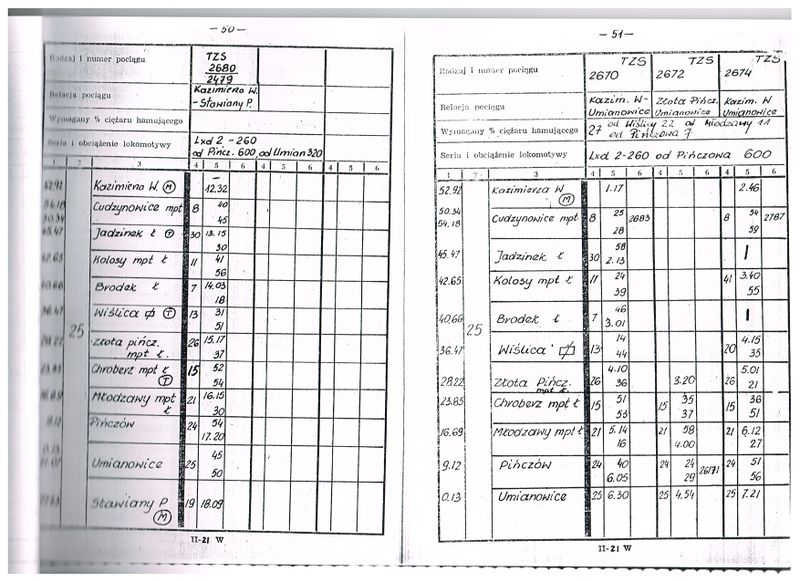 — 50 —
Rodzaj i numer pociągu
TZS
2680
2479
Relacja pociągu
Kazimierza W.
- Stawiany P.
Wymagany % ciężaru hamującego
Seria i obciążenie lokomotywy
Lxd 2 - 260
od Pińcz. 600, od Umian 320
1 2 3 4 5 6 4 5 6 4 5 6
52.92 Kazimiera W. (M) — 12.32
Cudzynowice mpt 8 40
50.34 45
45.47 Jadzinek ł (T) 30 13.15
30
42.65 Kolosy mpt ł 11 41
56
40.66 Brodek ł 7 14.03
18
36.47 Wiślica (T) 13 31
51
25
28.22 Złota pińcz. 26 15.17
mpt ł. 37
23.85 Chroberz mpt ł 15 52
(T) 54
16.69 Młodzawy mpt 21 16.15
ł 30
9.12 Pińczów 24 54
17.20
0.13 45
Umianowice 25 50
Stawiany P 19 18.09
(M)
II-21 W
— 51 —
Rodzaj i numer pociągu
TZS TZS TZS
2670 2672 2674
Relacja pociągu
Kazim. W- Złota Pińcz. Kazim. W
Umianowice Umianowice Umianowice
Wymagany % ciężaru hamującego
27 od Wiślicy 22 od Młodzawy 11
od Pińczowa 7
Seria i obciążenie lokomotywy
Lxd 2-260 od Pińczowa 600
1 2 3 4 5 6 4 5 6 4 5 6
52.92 Kazimierza W 1.17 2.46
(M)
50.34 Cudzynowice mpt 8 25 2683 8 54 2787
54.18 28 59
45.47 Jadzinek ł 30 58
2.13
42.65 Kolosy mpt ł 11 24 41 3.40
39 55
40.66 Brodek ł 7 46
3.01
25
36.47 Wiślica 13 14 20 4.15
44 35
28.22 Złota Pińcz. 26 4.10 3.20 26 5.01
mpt ł. 36 21
23.85 Chroberz mpt ł 15 51 15 35 15 36
53 37 51
16.69 Młodzawy mpt ł 21 5.14 21 58 21 6.12
16 4.00 27
9.12 Pińczów 24 40 24 24 26171 24 51
6.05 29 56
0.13 Umianowice 25 6.30 25 4.54 25 7.21
II-21 W